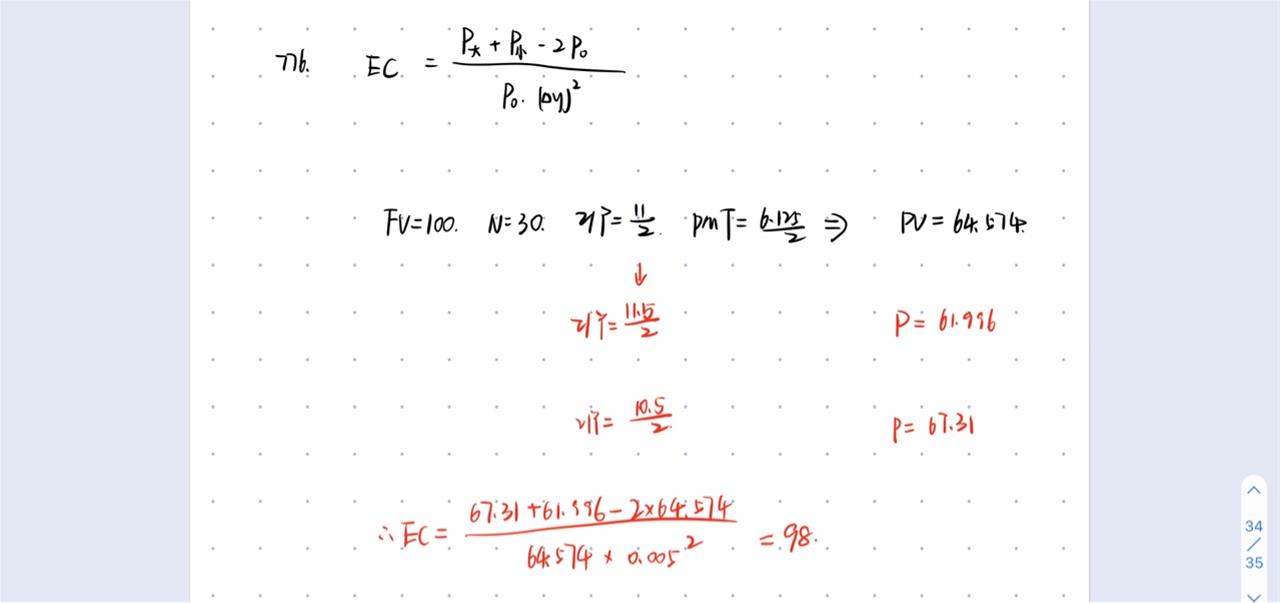 776. EC = (P大 + P小 - 2P₀) / (P₀·(Δy)²)
FV=100. N=30. I/Y=11/2. PMT=6.125/2 ⇒ PV=64.574.
↓
I/Y=11.5/2 P=61.996
I/Y=10.5/2 P=67.31
∴EC=(67.31+61.996-2×64.574)/(64.574×0.005²)=98.
34
/
35